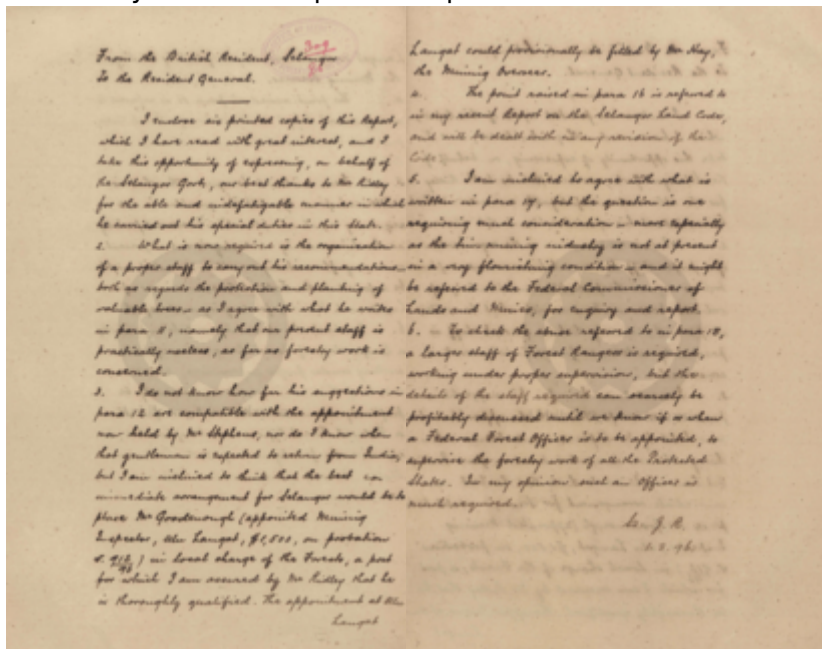 From the British Resident, Selangor
To the Resident General.
I enclose six printed copies of this Report,
which I have read with great interest, and I
take this opportunity of expressing, on behalf of
the Selangor Govt, our best thanks to Mr Ridley
for the able and indefatigable manner in which
he carried out his special duties in this State.
2. What is now required is the organisation
of a proper staff to carry out his recommendations
both as regards the protection and planting of
valuable trees as I agree with what he writes
in para 11, namely that our present staff is
practically useless, as far as forestry work is
concerned.
3. I do not know how far his suggestions in
para 12 are compatible with the appointment
now held by Mr Stephens, nor do I know when
that gentleman is expected to return from India,
but I am inclined to think that the best
immediate arrangement for Selangor would be to
place Mr Goodenough (appointed Mining
Inspector, Ulu Langat, $1,500, on probation
in local charge of the Forests, a post
for which I am assured by Mr Ridley that he
is thoroughly qualified. The appointment at Ulu
Langat
Langat could provisionally be filled by Mr Hay,
the Mining Overseer.
The point raised in para 16 is referred to
in my recent Report on the Selangor Land Code,
and will be dealt with in any revision of the
Code.
5. I am inclined to agree with what is
written in para 17, but the question is one
requiring much consideration more especially
as the tin mining industry is not at present
in a very flourishing condition and it might
be referred to the Federal Commissioner of
Lands and Mines, for enquiry and report.
6. To check the abuse referred to in para 18,
a larger staff of Forest Rangers is required,
working under proper supervision, but the
details of the staff required can scarcely be
profitably discussed until we know if or when
a Federal Forest Officer is to be appointed, to
supervise the forestry work of all the Protected
States. In my opinion such an Officer is
much required.